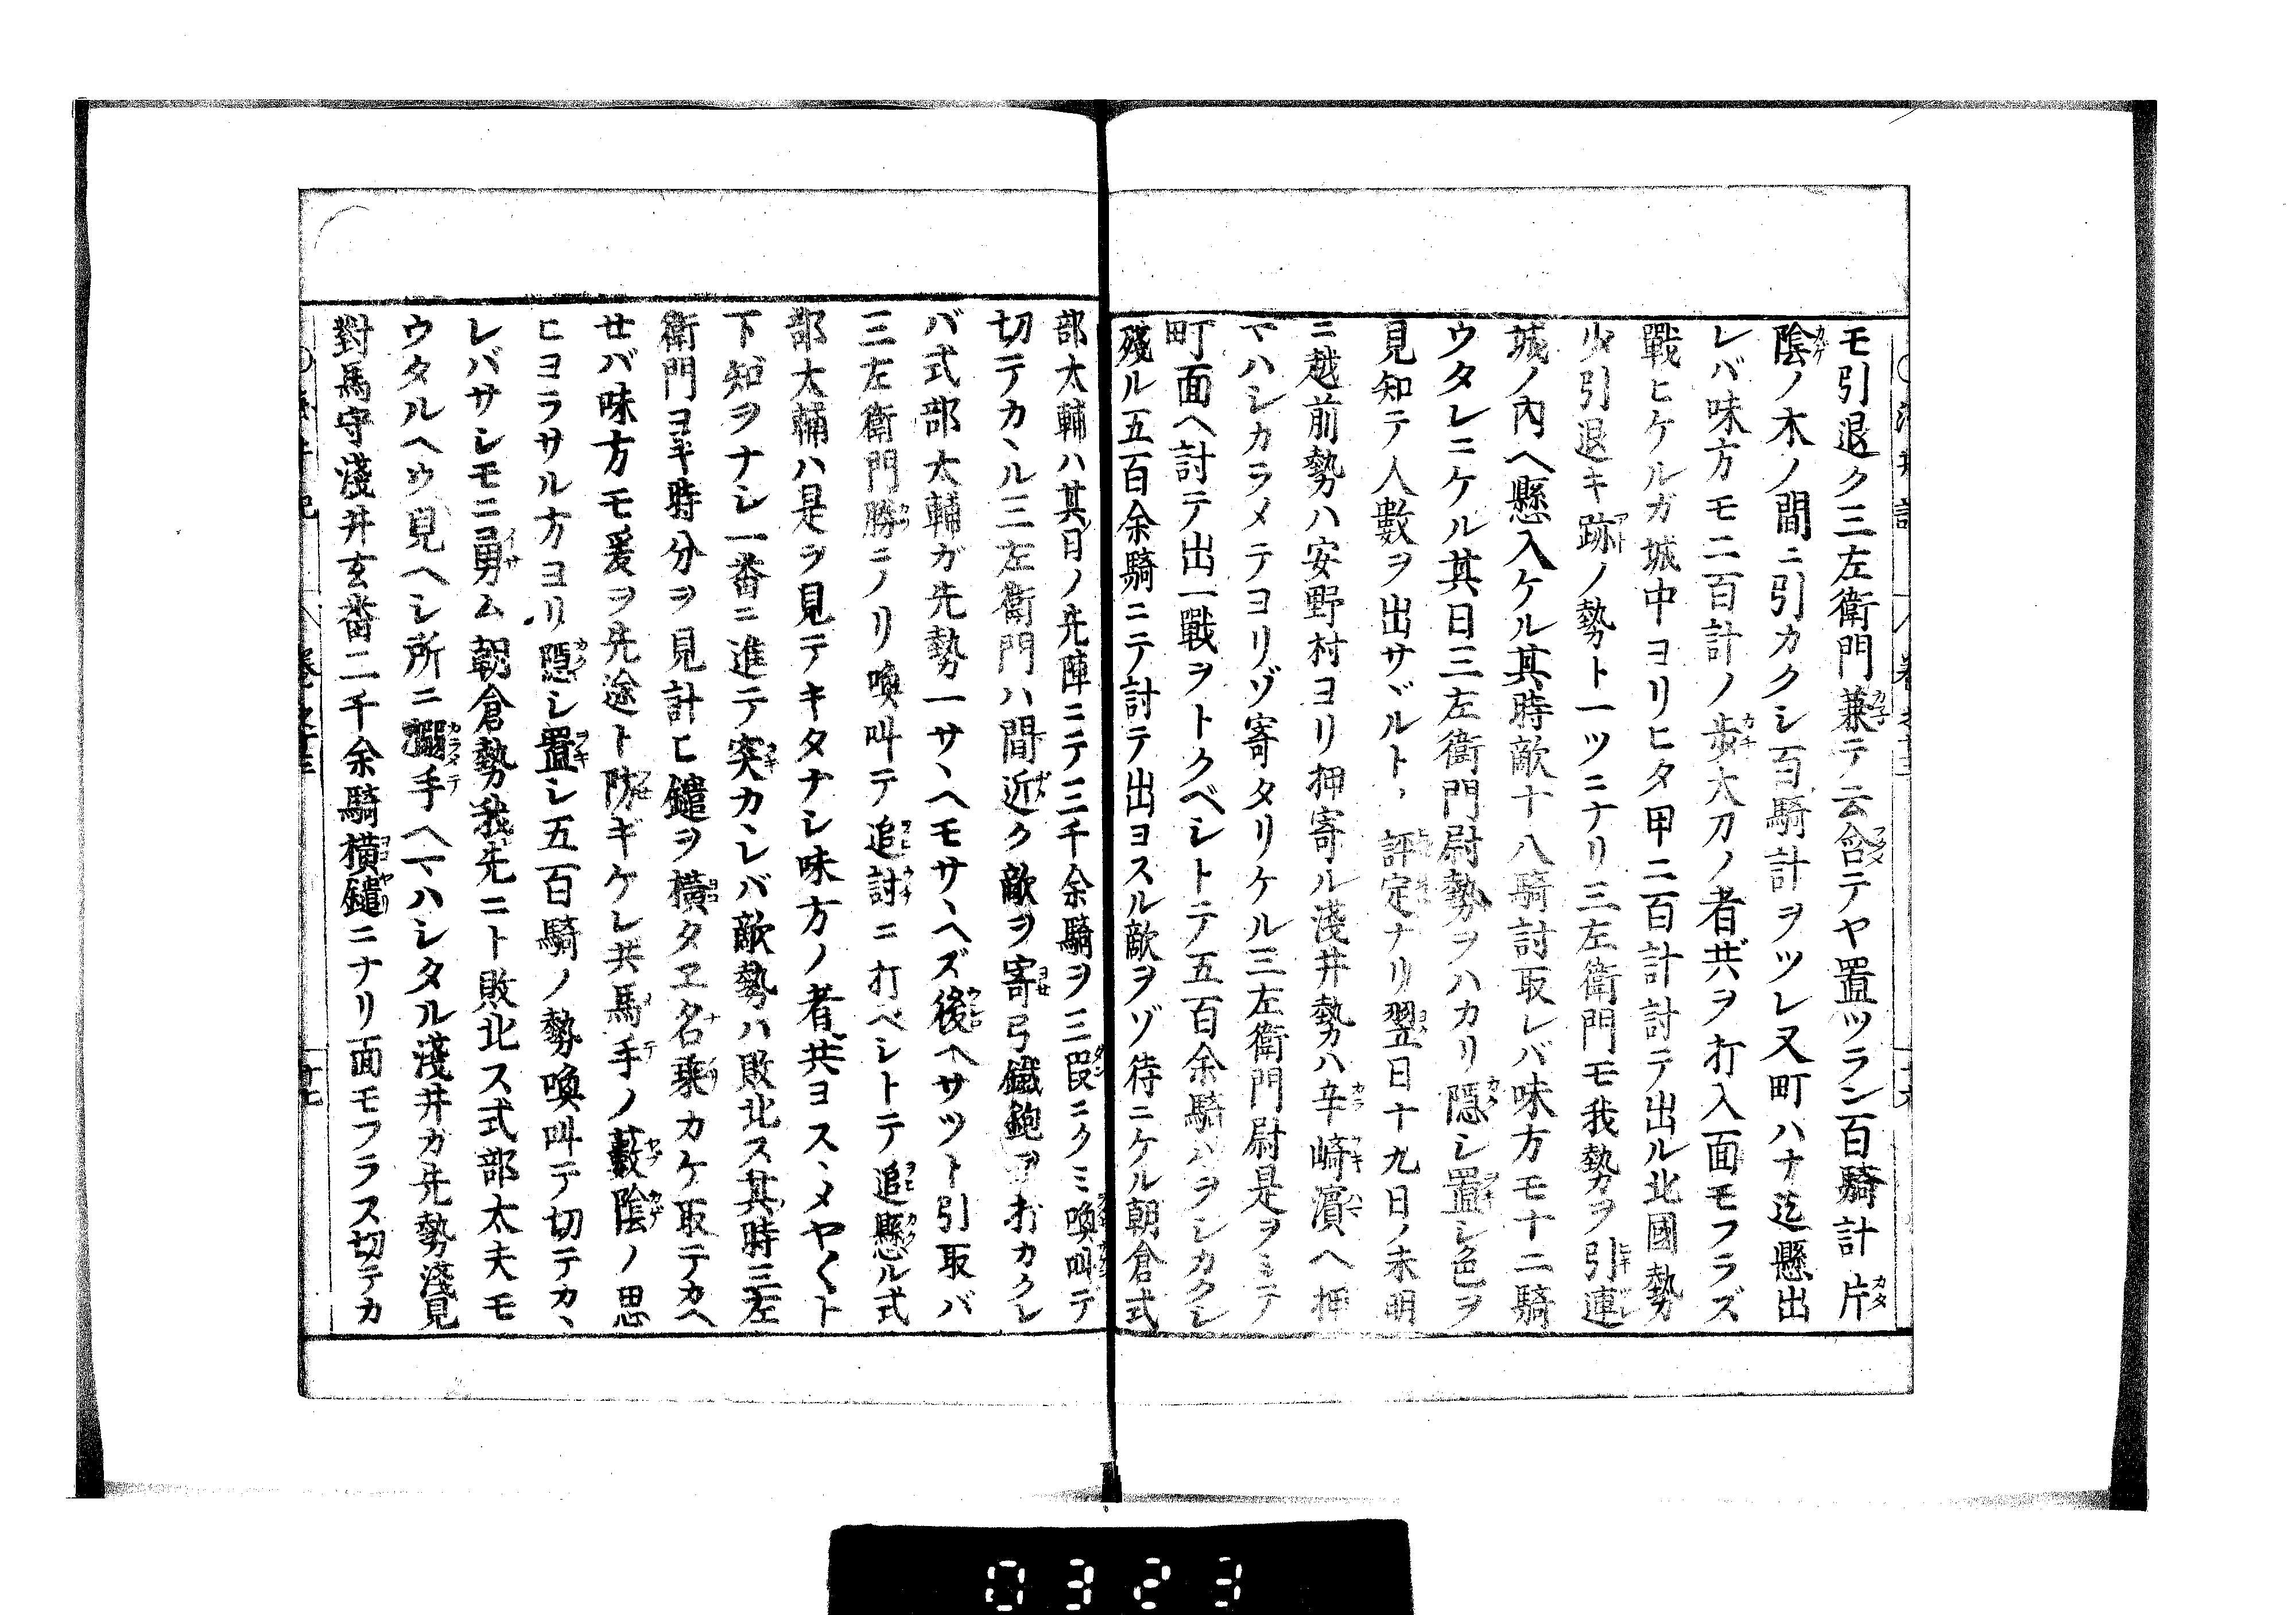 モ引退ク三左衛門兼テ云含テヤ置ツラン百騎計片
陰ノ木ノ間ニ引カクシ百騎計ヲツレ又町ハナ迄懸出
レバ味方モ二百計ノ歩大刀ノ者共ヲ打入面モフラズ
戰ヒケルガ城中ヨリヒタ甲二百計討テ出ル北國勢
少引退キ跡ノ勢ト一ツニナリ三左衛門モ我勢ヲ引連
城ノ内ヘ懸入ケル其時敵十八騎討取レバ味方モ十二騎
ウタレニケル其日三左衛門尉勢ヲハカリ隠シ置シ色ヲ
見知テ人數ヲ出サヾルト、評定ナリ翌日十九日ノ未明
ニ越前勢ハ安野村ヨリ押寄ル淺井勢ハ辛崎濵ヘ押
マハシカラメテヨリゾ寄タリケル三左衛門尉是ヲミテ
町面ヘ討テ出一戰ヲトクベシトテ五百余騎ハヲシカクシ
殘ル五百余騎ニテ討テ出ヨスル敵ヲゾ待ニケル朝倉式
部太輔ハ其日ノ先陣ニテ三千余騎ヲ三段ニクミ喚叫テ
切テカヽル三左衛門ハ間近ク敵ヲ寄弓鐵鉋ヲ打カクレ
バ式部大輔ガ先勢一サヽヘモサヽヘズ後ヘサツト引取バ
三左衛門勝ニノリ喚叫テ追討ニ打ベシトテ追懸ル式
部太輔ハ是ヲ見テキタナシ味方ノ者共ヨスヽメヤ〱ト
下知ヲナシ一番ニ進テ突カヽレバ敵勢ハ敗北ス其時三左
衛門ヨキ時分ヲ見計ヒ鑓ヲ横タヱ名乗カケ取テカヘ
せバ味方モ爰ヲ先途ト防ギケレ共馬手ノ藪陰ノ思
ヒヨラサル方ヨリ隠シ置シ五百騎ノ勢喚叫テ切テカヽ
レバサシモニ勇ム朝倉勢我先ニト敗北ス式部太夫モ
ウタルヘウ見ヘシ所ニ搦手ヘマハシタル淺井ガ先勢淺見
對馬守淺井玄番二千余騎横鑓ニナリ面モフラス切テカ
0323